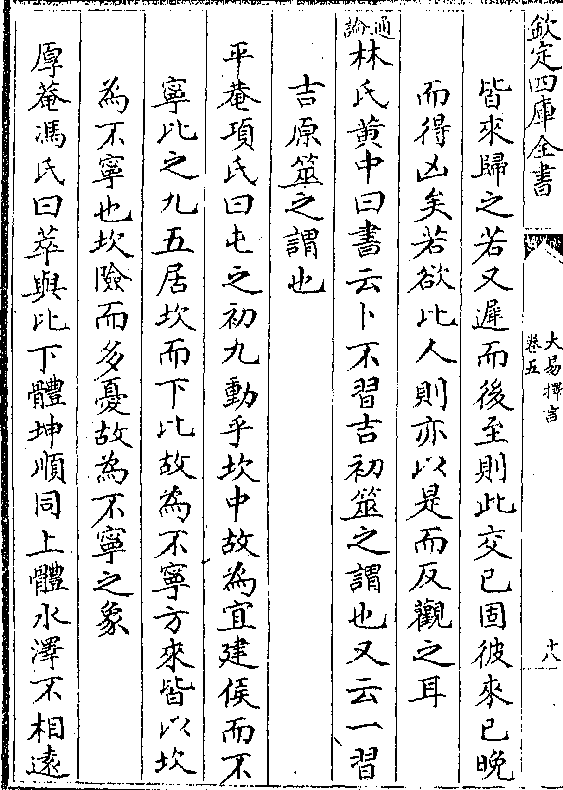 欽定四庫全書
大易擇言
卷五
十八
皆來歸之若又遲而後至則此交已固彼來已晚
而得凶矣若欲比人則亦以是而反觀之耳
通論林氏黄中曰書云卜不習吉初筮之謂也又云一習
吉原筮之謂也
平菴項氏曰屯之初九動乎坎中故為宜建侯而不
寧比之九五居坎而下比故為不寧方來皆以坎
為不寧也坎險而多憂故為不寧之象
厚菴馮氏曰萃與比下體坤順同上體水澤不相遠